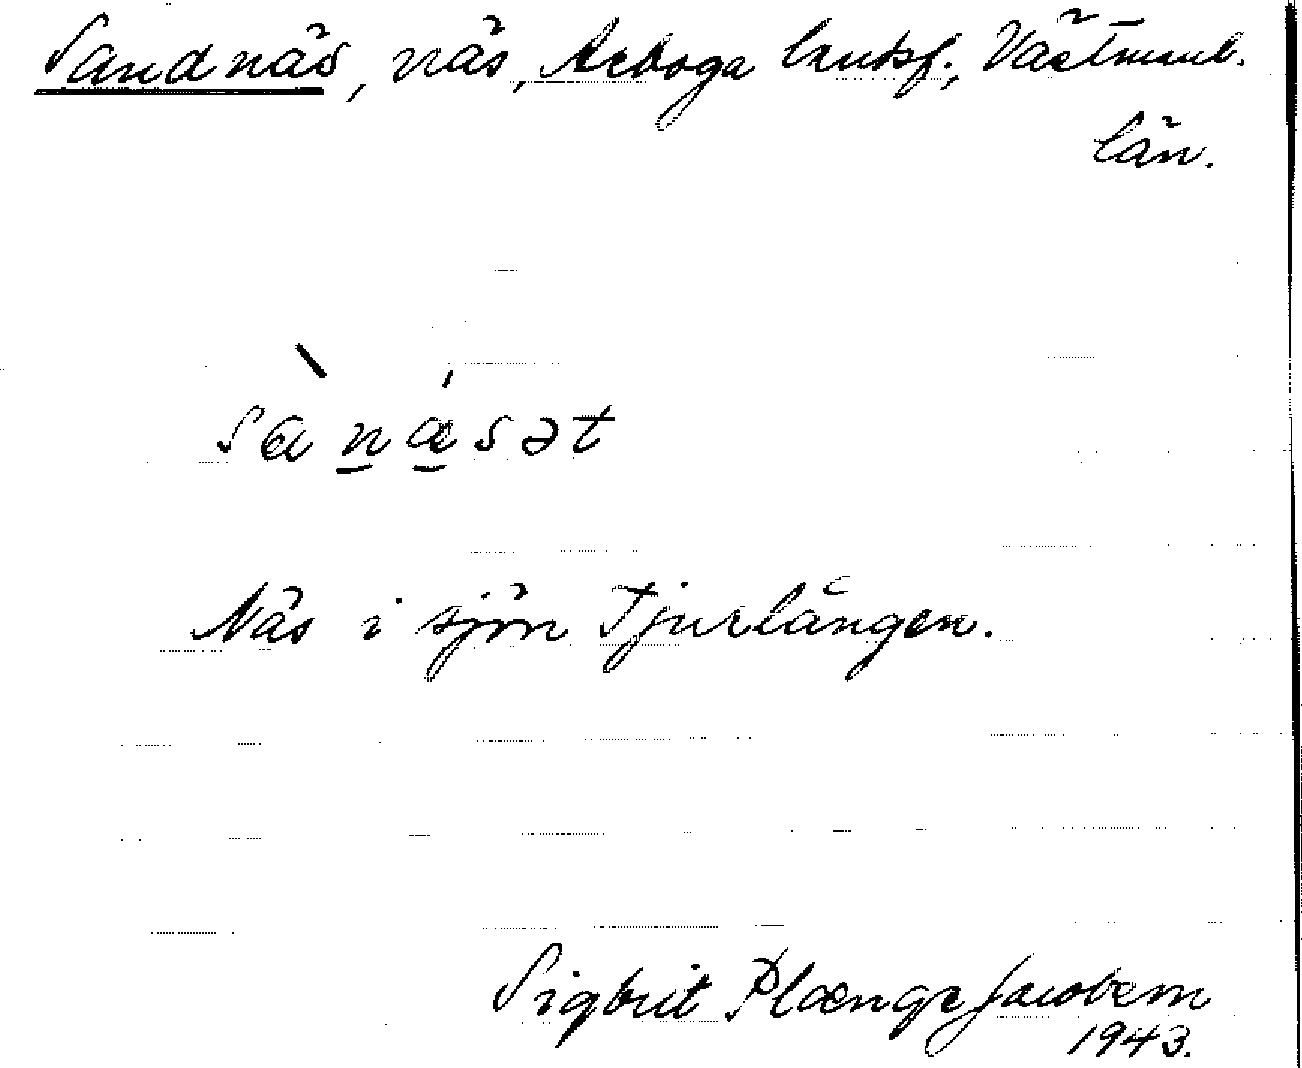 Sandnäs, näs, Arboga lantsf., Västmanl.
län.
sànæ´sət
Näs i sjön Tjurlången.
Sigbrit Plænge Jacobson
1943.